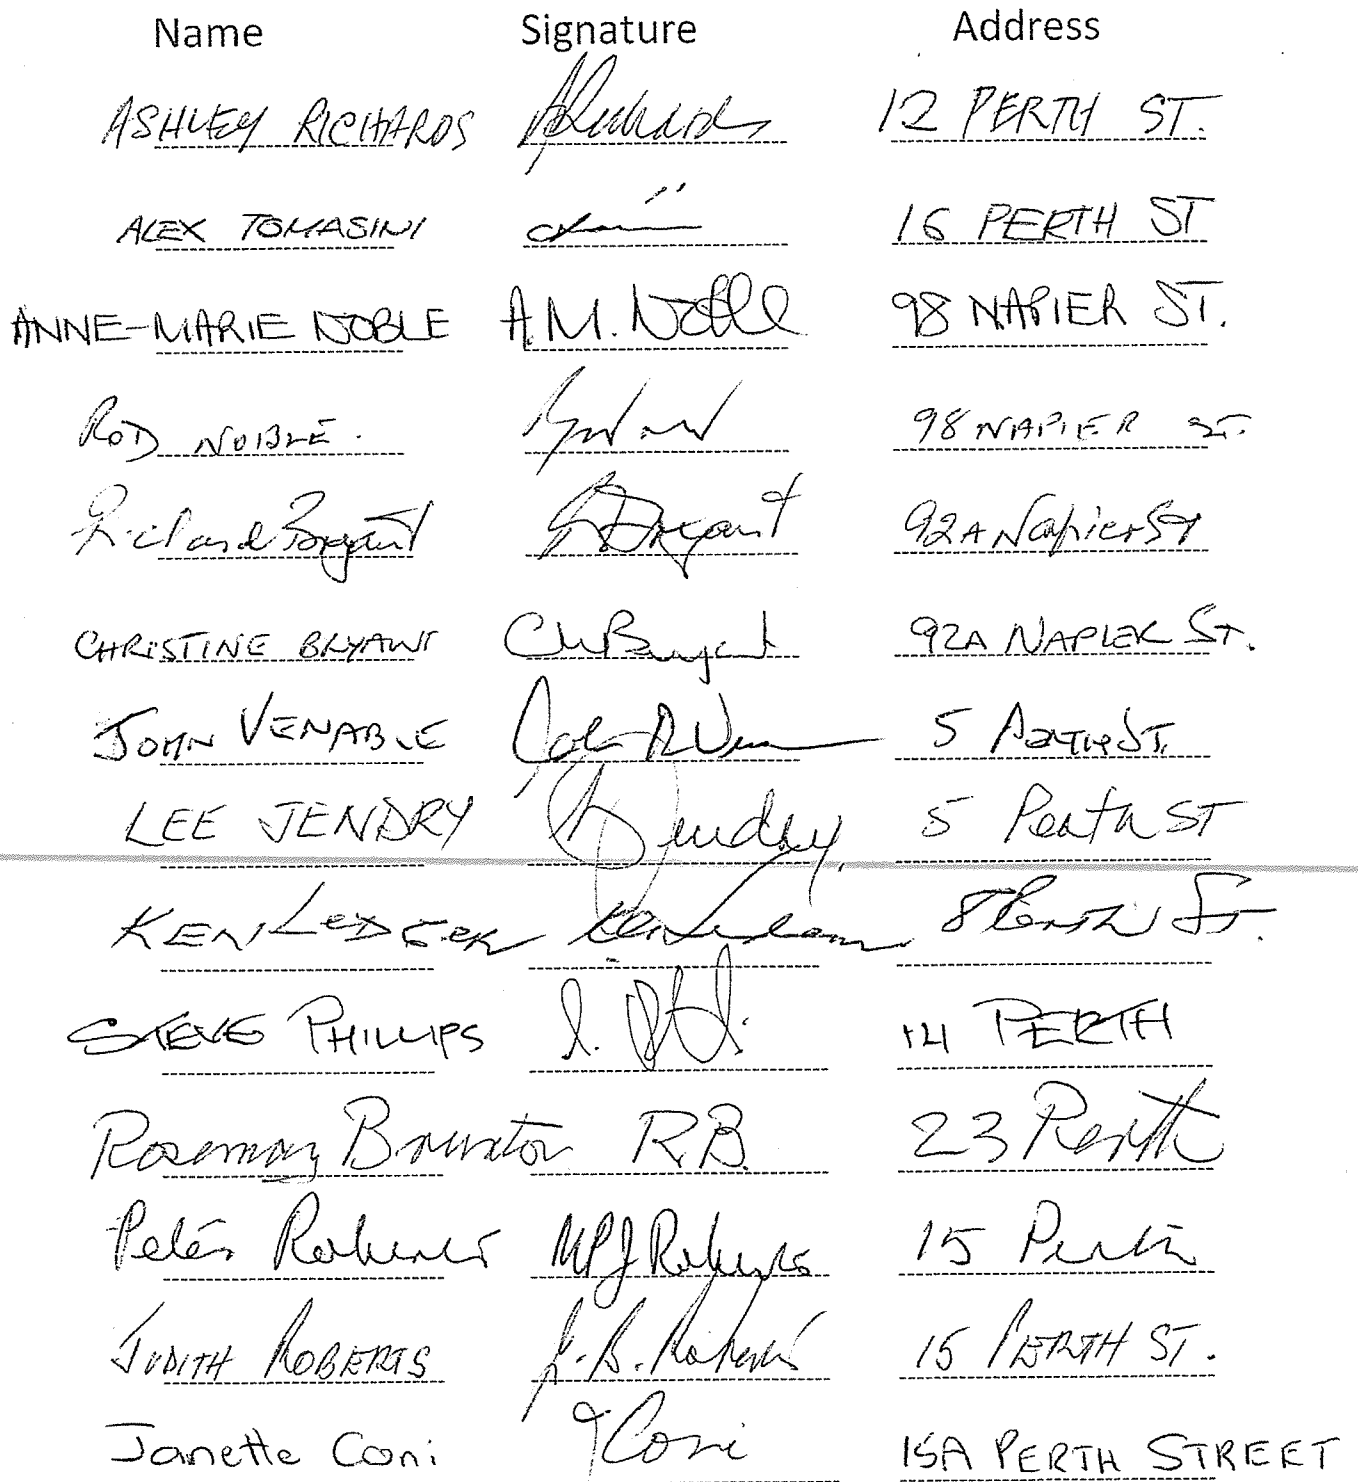 Name Signature Address
ASHLEY RICHARDS ARichards 12 PERTH ST.
ALEX TOMASINI 16 PERTH ST
ANNE-MARIE NOBLE A.M. Noble 98 NAPIER ST.
ROD NOBLE. 98 NAPIER ST.
Richard Bryant RBryant 92A Napier St
CHRISTINE BRYANT Bryant 92A NAPIER ST.
JOHN VENABLE John 5 PERTH ST.
LEE JENDRY Jendry. 5 Perth ST
KEN LEDGER 8 PERTH ST.
STEVE PHILLIPS 14 PERTH
Rosemary R.B. 23 Perth
Peter Roberts MPJ Roberts 15 Perth
JUDITH ROBERTS J.B. Roberts 15 PERTH ST.
Janette Coni JConi 15A PERTH STREET